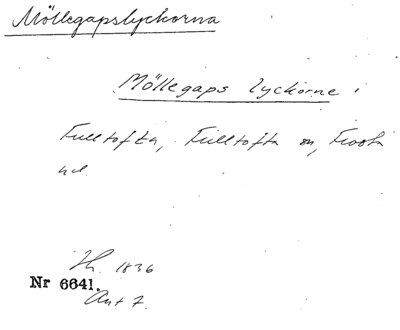 Möllegapslyckorna
Möllegaps lyckorne
Fulltofta, Fulltofta sn, Frosta
hd.
1836
Nr 6641.
Akt 7.